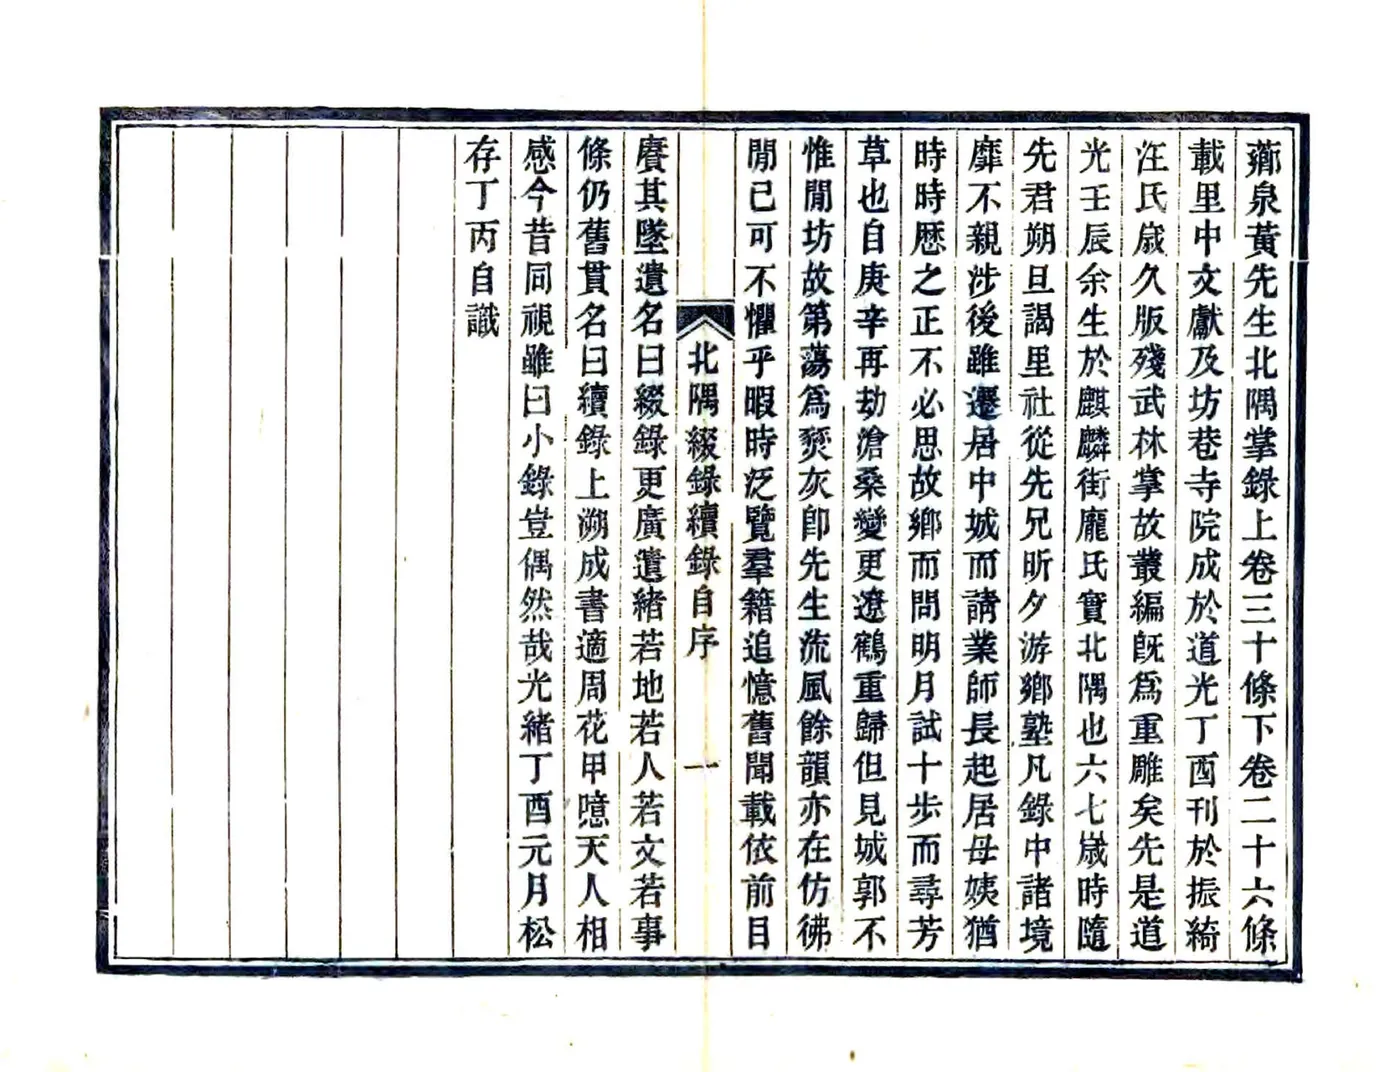 薌泉黃先生北隅掌錄上卷三十條下卷二十六條
載里中文獻及坊巷寺院成於道光丁酉刊於振綺
汪氏歲久版殘武林掌故叢編旣爲重雕矣先是道
光壬辰余生於麒麟街龐氏實北隅也六七歲時隨
先君朔旦謁里社從先兄昕夕游鄉塾凡錄中諸境
靡不親涉後雖遷居中城而請業師長起居母姨猶
時時歷之正不必思故鄉而問明月試十步而尋芳
草也自庚辛再劫滄桑變更遼鶴重歸但見城郭不
惟閒坊故第蕩爲煙灰卽先生流風餘韻亦在仿彿
閒已可不懼乎暇時泛覽羣籍追憶舊聞載依前目
北隅綴錄續錄自序 一
賡其墜遺名曰綴錄更廣遺緒若地若人若文若事
條仍舊貫名曰續錄上溯成書適周花甲噫天人相
感今昔同視雖曰小錄豈偶然哉光緒丁酉元月松
存丁丙自識